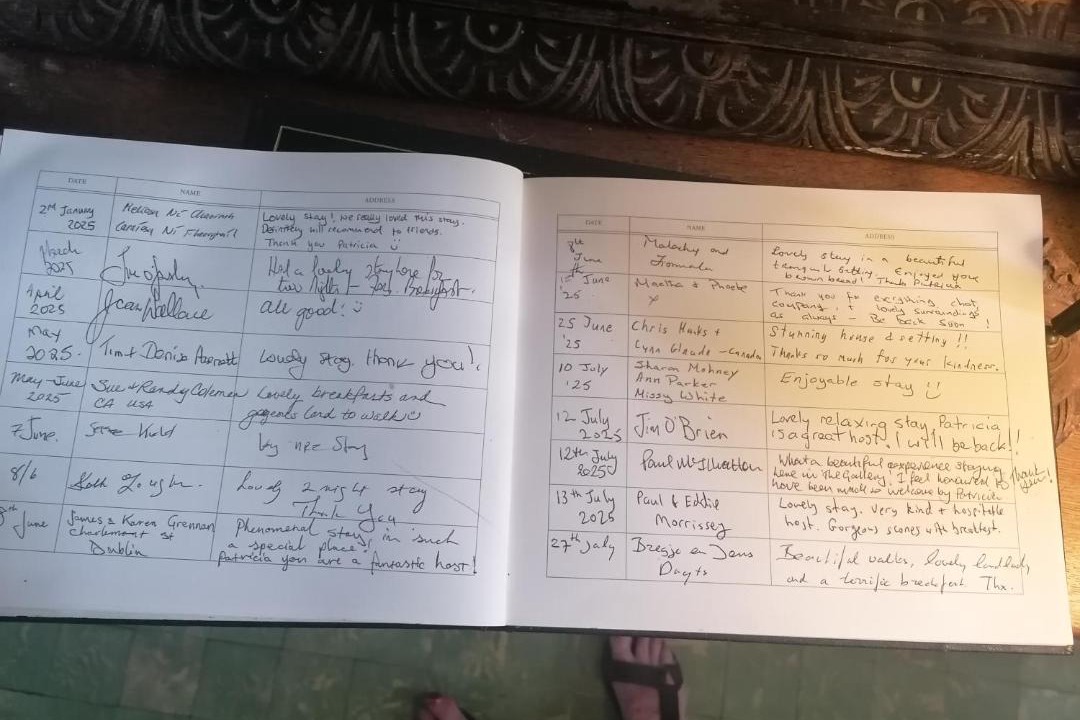 DATE NAME ADDRESS
2nd January
2025
Lovely stay! We really loved this stay.
Definitely will recommend to friends.
Thank you Patricia
March
2025
Had a lovely
two nights
April
2025
Jean Wallace
all good!
May
2025.
Tim & Denise
Lovely stay, thank you!
May-June
2025
Sue & Randy Coleman
CA USA
Lovely breakfasts and
land to walk
7 June.
Big nice Stay
8/6
Lovely 2 night stay
Thank You
June
James & Karen Grennan
Charlemont St
Dublin
Phenomenal stay, in such
a special place,
Patricia you are a fantastic host!
DATE NAME ADDRESS
8th
June
Malachy and
Fionnuala
Lovely stay in a beautiful
tranquil setting. Enjoyed your
brown bread! Thanks Patricia
June
'25
Martha & Phoebe
x
Thank you for everything chat,
company, & lovely surroundings
as always - Be back soon!
25 June
'25
Chris Hanks +
Lynn - Canada
Stunning house & setting!!
Thanks so much for your kindness.
10 July
'25
Sharon Mohney
Ann Parker
Missy White
Enjoyable stay
12 July
2025
Jim O'Brien
Lovely relaxing stay, Patricia
is a great host. I will be back!!
12th July
2025
Paul
What a beautiful experience staying
here in The Gallery. I feel honoured to
have been made so welcome by Patricia
Thank
you!
13th July
2025
Paul & Eddie
Morrissey
Lovely stay. Very kind + hospitable
host. Gorgeous scones with breakfast.
27th July
Beautiful walks, lovely landlady,
and a terrific breakfast Thx.